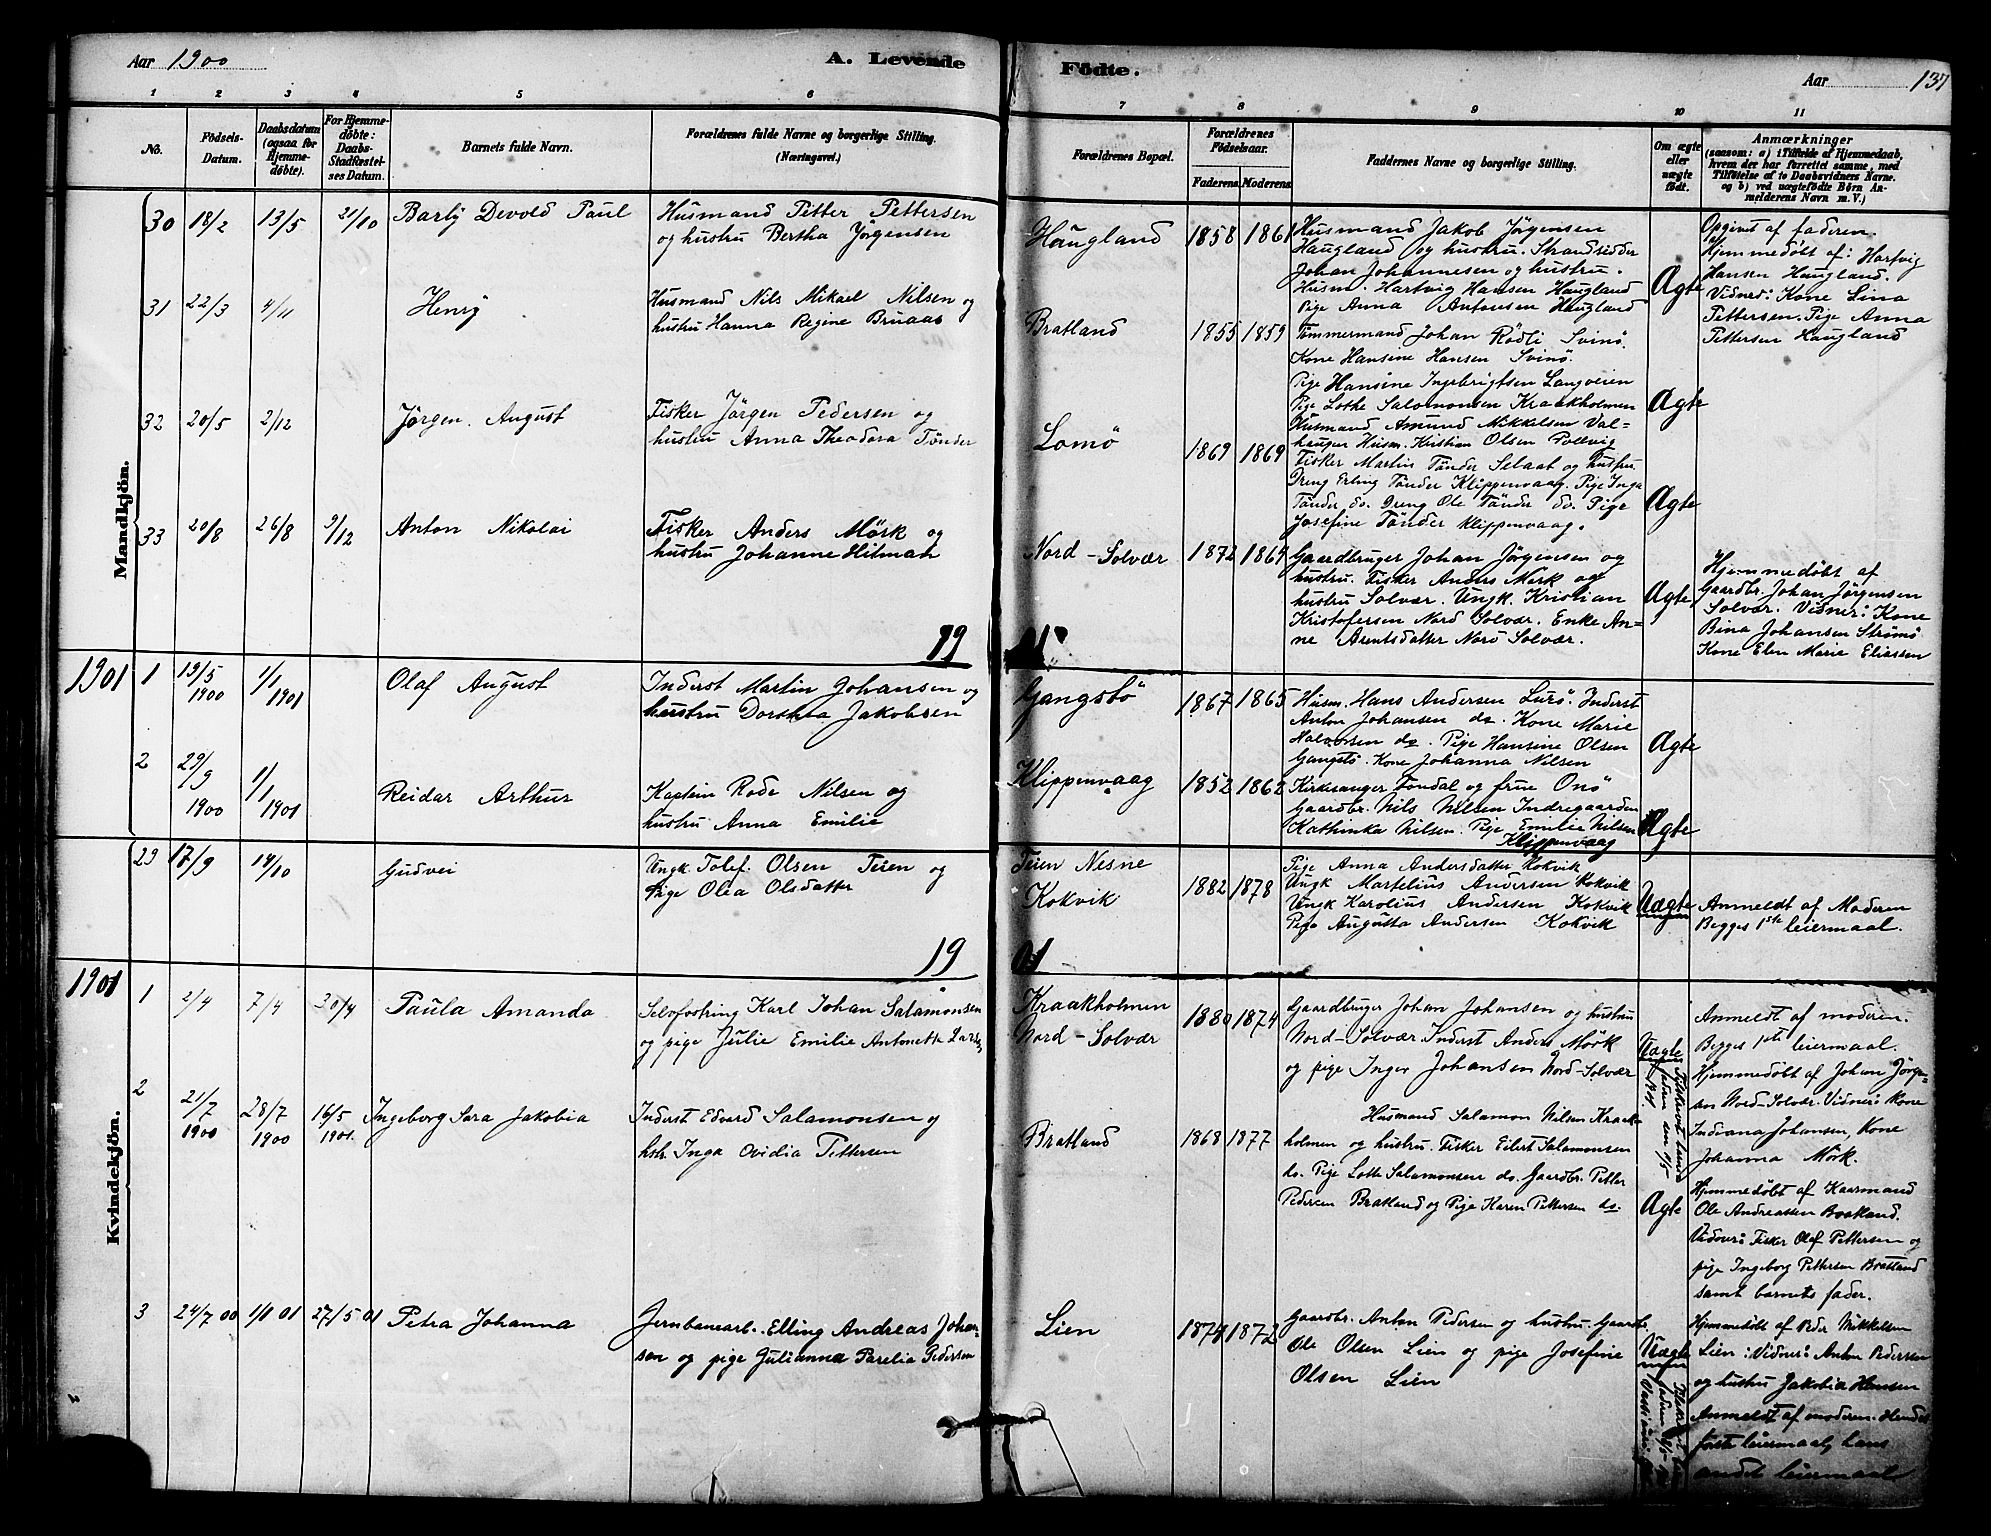 Aar 1900
A. Levende
Födte.
Aar
137
1 2 3 4 5 6 7 8 9 10 11
No.
Födsels-Datum.
Daabsdatum (ogsaa for Hjemme-døbte).
For Hjemme-døbte: Daabs-Stadfæstel-ses Datum.
Barnets fulde Navn.
Forældrenes fulde Navne og borgerlige Stilling.
(Næringsvei.)
Forældrenes Bopæl.
Forældrenes Födselsaar.
Faderens. Moderens.
Faddernes Navne og borgerlige Stilling.
Om ægte eller uægte født.
Anmærkninger
(saasom: a) i Tilfælde af Hjemmedaab,
hvem der har forrettet samme, med
Tilføielse af to Daabsvidners Navne.
og b) ved uægtefødte Börn An-
melderens Navn m. V.)
Mandkjön.
30 18/2 13/5 21/10 Barly Devold Paul
Husmand Petter Pettersen
og hustru Bertha Jörgensen
Haugland 1858 1861
Husmand Jakob Jörgensen
Haugland og hustru. Strandsidder
Johan Johannesen og hustru.
Husm. Hartvig Hansen Haugland
Pige Anna Antonsen Haugland
Ægte
Opgivet af faderen.
Hjemmedöbt af: Hartvig
Hansen Haugland.
Vidner: Kone Lina
Pettersen. Pige Anna
Pettersen Haugland
31 22/3 4/11 Henry
Husmand Nils Mikael Nilsen og
hustru Hanna Regine Bruaas
Bratland 1855 1859
Tømmermand Johan Rödli Svinö.
Kone Hansine Hansen Svinö.
Pige Hansine Ingebrigtsen Langveien
Pige Lothe Salomonsen Kraakholmen
Ægte
32 20/5 2/12 Jörgen August
Fisker Jörgen Pedersen og
hustru Anna Theodora Tönder
Lomö 1869 1869
Husmand Amund Mikkelsen Val-
hauger Husm. Kristian Olsen
Fisker Martin Tönder Selaat og hustru
Dreng Erling Tönder Klippenvaag. Pige Inga
Tönder do. Dreng Ole Tönder do. Pige
Josefine Tönder Klippenvaag.
Ægte
33 20/8 26/8 9/12 Anton Nikolai
Fisker Anders Mörk og
hustru Johanne Hilmah
Nord-Solvær 1872 1864
Gaardbruger Johan Jörgensen og
hustru. Fisker Anders Mork og
hustru Solvær. Ungk. Kristian
Kristofersen Nord Solvær. Enke An=
ne Arentsdatter Nord Solvær.
Ægte
Hjemmedöbt af
Gaardbr. Johan Jörgensen
Solvær. Vidner: Kone
Bina Johansen Strömö
Kone Elen Marie Eliassen
19 01
1901
1 19/5 1900 1/1 1901 Olaf August
Inderst Martin Johansen og
hustru Dorthea Jakobsen
Gangstö 1867 1865
Husm. Hans Andersen Lurö. Inderst
Anton Johansen do. Kone Marie
Halvorsen do. Pige Hansine Olsen
Gangstö. Kone Johanna Nilsen
Ægte
2 29/9 1900 1/1 1901 Reidar Arthur
Kaptein Rode Nilsen og
hustru Anna Emilie
Klippenvaag 1852 1862
Kirkesanger Fondal og frue Onö
Gaardbr. Nils Nilsen Indregaarden
Kathinka Nilsen. Pige Emilie Nilsen
Klippenvaag
Ægte
Kvindekjön.
29 17/9 14/10 Gudvei
Ungk Tolef Olsen Teien og
Pige Olea Olsdatter
Teien Nesne
Kokvik 1882 1878
Pige Anna Andersdatter Kokvik
Ungk Martelius Andersen Kokvik
Ungk Karolius Andersen Kokvik
Pige Augusta Andersen Kokvik
Uægte
Anmeldt af Moderen
Begges 1ste leiermaal.
19 01
1901
1 2/4 7/4 30/4 Paula Amanda
Selvfostring Karl Johan Salamonsen
og pige Julie Emilie Antonette
Kraakholmen
Nord-Solvær 1880 1874
Gaardbruger Johan Johansen og hustru
Nord-Solvær. Inderst Anders Mörk
og pige Inger Johansen Nord-Solvær
Uægte
Anmeldt af moderen.
Begges 1ste leiermaal.
Hjemmedöbt af Johan Jörgen=
sen Nord-Solvær. Vidner: Kone
Indiana Johansen, Kone
Johanna Mörk.
2 21/7 1900 28/7 1900 16/5 1901. Ingeborg Sara Jakobia
Inderst Edvard Salamonsen og
hstr. Inga Ovidia Pettersen
Bratland 1868 1877
Husmand Salamon Nilsen Kraak-
holmen og hustru. Fisker Eilert Salamonsen
do. Pige Lotte Salamonsen do. Gaardbr. Petter
Pedersen Bratland og Pige Karen Pettersen do.
Ægte
Hjemmedöbt af Kaarmand
Ole Andreassen Bratland.
Vidner: Fisker Olaf Pettersen og
pige Ingeborg Pettersen Bratland
samt barnets fader.
3 24/7 00 1/8 01 27/5 01 Petra Johanna
Jernbanearb. Elling Andreas Johan-
sen og pige Julianna Parelia Pedersen
Lien 1874 1872
Gaardbr. Anton Pedersen og hustru. Gaardbr.
Ole Olsen Lien og pige Josefine
Olsen Lien
Uægte
Hjemmedöbt af Peder Mikkelsen
Lien: Vidner: Anton Pedersen
og hustru Jakobia Hansen
Anmeldt af moderen. Hendes
förste leiermaal, hans
andet leiermaal